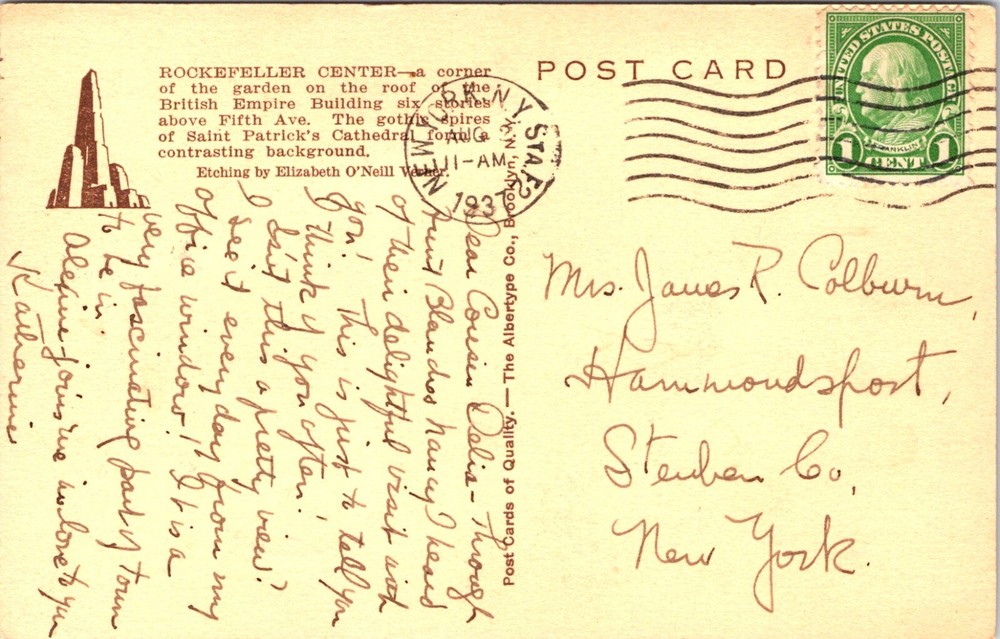 ROCKEFELLER CENTER—a corner
of the garden on the roof of the
British Empire Building six stories
above Fifth Ave. The gothic spires
of Saint Patrick's Cathedral form a
contrasting background.
Etching by Elizabeth O'Neill Verner.
POST CARD
NEW YORK, N.Y. STA.
AUG
11-AM
1937
UNITED STATES POSTAGE
FRANKLIN
1 CENT 1
Post Cards of Quality. — The Albertype Co., Brooklyn, N.Y.
Dear Cousin Delia – Through
Aunt Blanche & Nancy I heard
of their delightful visit with
you! This is just to tell you
I think of you often!
Isn't this a pretty view?
I see it every day from my
office window! It is a
very fascinating part of town
to be in.
joins me in love to you
Katherine
Mrs. James R. Colburn,
Hammondsport,
Steuben Co,
New York.